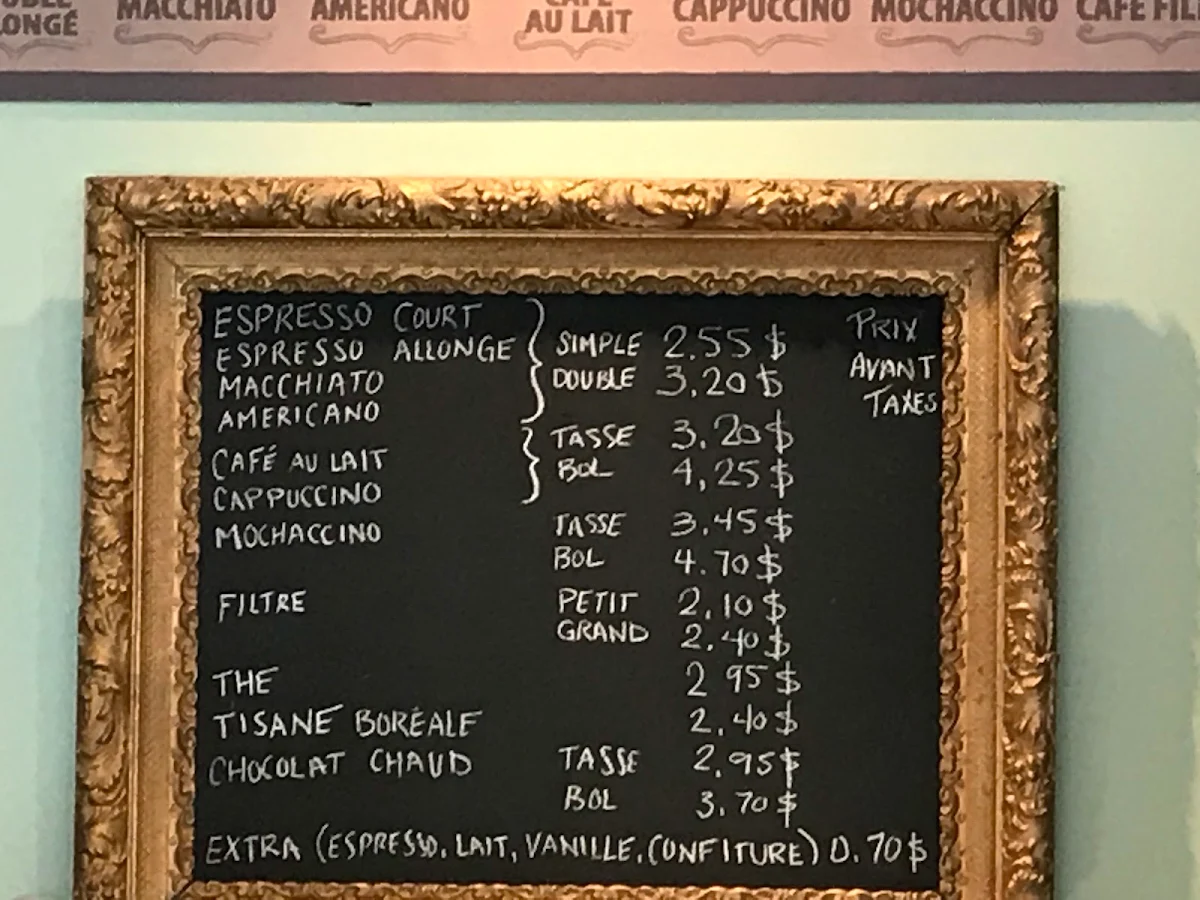 MACCHIATO AMERICANO CAFÉ AU LAIT CAPPUCCINO MOCHACCINO CAFÉ
ESPRESSO COURT
ESPRESSO ALLONGE SIMPLE 2.55 $
MACCHIATO DOUBLE 3.20 $
AMERICANO
PRIX
AVANT
TAXES
CAFÉ AU LAIT TASSE 3.20 $
CAPPUCCINO BOL 4,25 $
MOCHACCINO TASSE 3.45 $
BOL 4.70 $
FILTRE PETIT 2.10 $
GRAND 2.40 $
THE 2 95 $
TISANE BORÉALE 2.40 $
CHOCOLAT CHAUD TASSE 2.95 $
BOL 3.70 $
EXTRA (ESPRESSO, LAIT, VANILLE, CONFITURE) 0.70 $